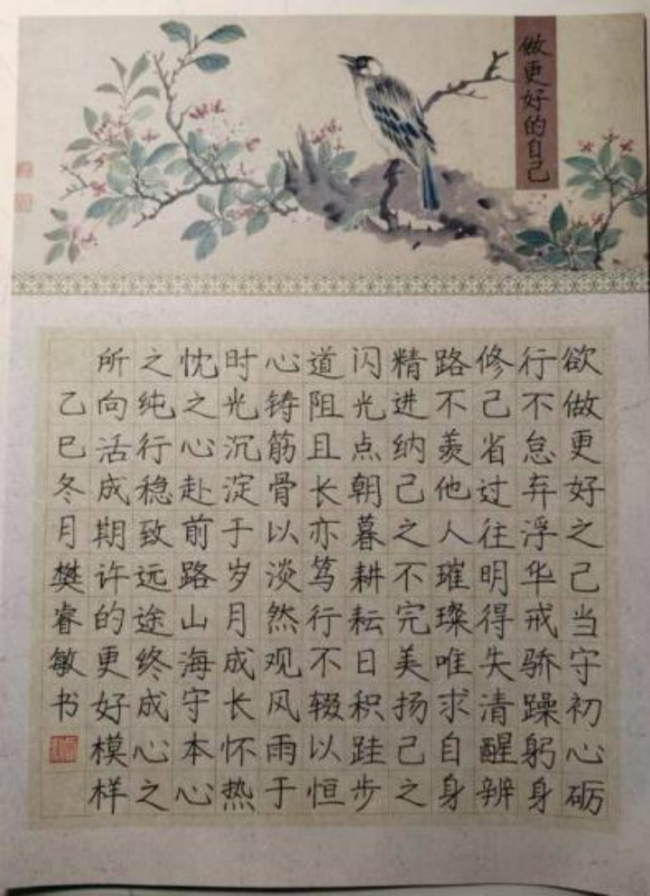 做更好的自己
欲做更好之己当守初心砺
行不怠弃浮华戒骄躁躬身
修己省过往明得失清醒辨
路不羡他人璀璨唯求自身
精进纳己之不完美扬己之
闪光点朝暮耕耘日积跬步
道阻且长亦笃行不辍以恒
心铸筋骨以淡然观风雨于
时光沉淀于岁月成长怀热
忱之心赴前路山海守本心
之纯行稳致远途终成心之
所向活成期许的更好模样
乙巳冬月樊睿敏书